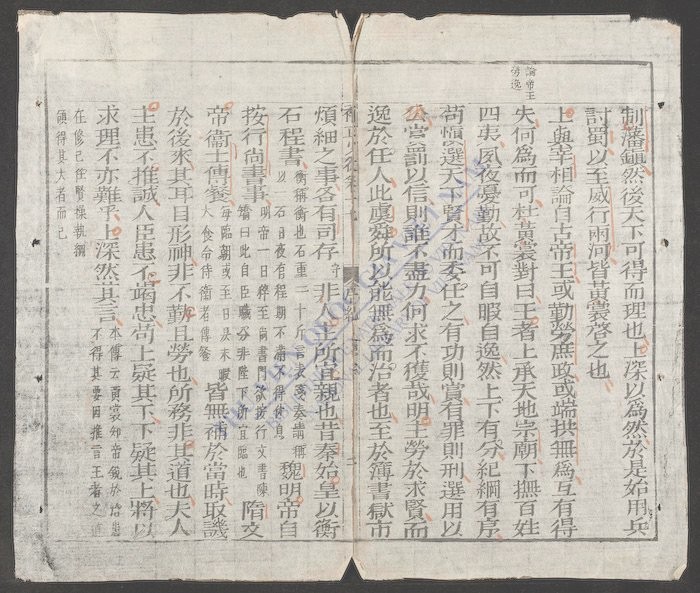 論帝王
勞逸
制藩鎭然後天下可得而理也上深以為然於是始用兵
討蜀以至威行兩河皆黃裳啓之也
上與宰相論自古帝王或勤勞庶政或端拱無為互有得
失何為而可杜黃裳對曰王者上承天地宗廟下撫百姓
四夷夙夜憂勤故不可自暇自逸然上下有分紀綱有序
苟愼選天下賢才而委任之有功則賞有罪則刑選用以
公賞罰以信則誰不盡力何求不獲哉明主勞於求賢而
逸於任人此虞舜所以能無為而治者也至於簿書獄市
煩細之事各有司存守非人主所宜親也昔秦始皇以衡
石程書衡稱衡也石重二十斤言表箋奏請稱以石日夜有程期不滿不得休息魏明帝自
按行尚書事明帝一日猝至尚書門欲按行文書陳矯曰此自臣職分非陛下所宜臨也隋文
帝衞士傳餐每臨朝或至日昃未暇大食命侍衛者傳餐皆無補於當時取譏
於後來其耳目形神非不勤且勞也所務非其道也夫人
主患不推誠人臣患不竭忠苟上疑其下下疑其上將以
求理不亦難乎上深然其言本傳云黃裳知帝銳於治恐不得其要因推言王者之道
在脩己任賢操執綱
領得其大者而已